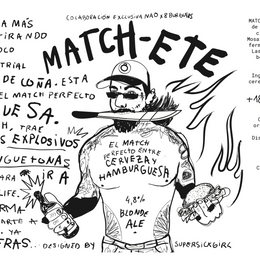 COLABORACIÓN EXCLUSIVA NAO x 8 BURGERS
MATCH-ETE
A MÁS
TIRANDO
OCO
TRIAL
DE COÑA. ESTA
EL MATCH PERFECTO
UESA.
H, TRAE
S EXPLOSIVOS
NGUETONAS
PARA iRA
LIFE.
ARTE A
YA
FRAS..
EL MATCH
PERFECTO ENTRE
CERVEZA Y
HAMBURGUESA
4,8%
BLONDE
ALE
DESIGNED BY
SUPERSICKGIRL
MATC
Mosa
ferm
Las
b
Ing
cere
+18